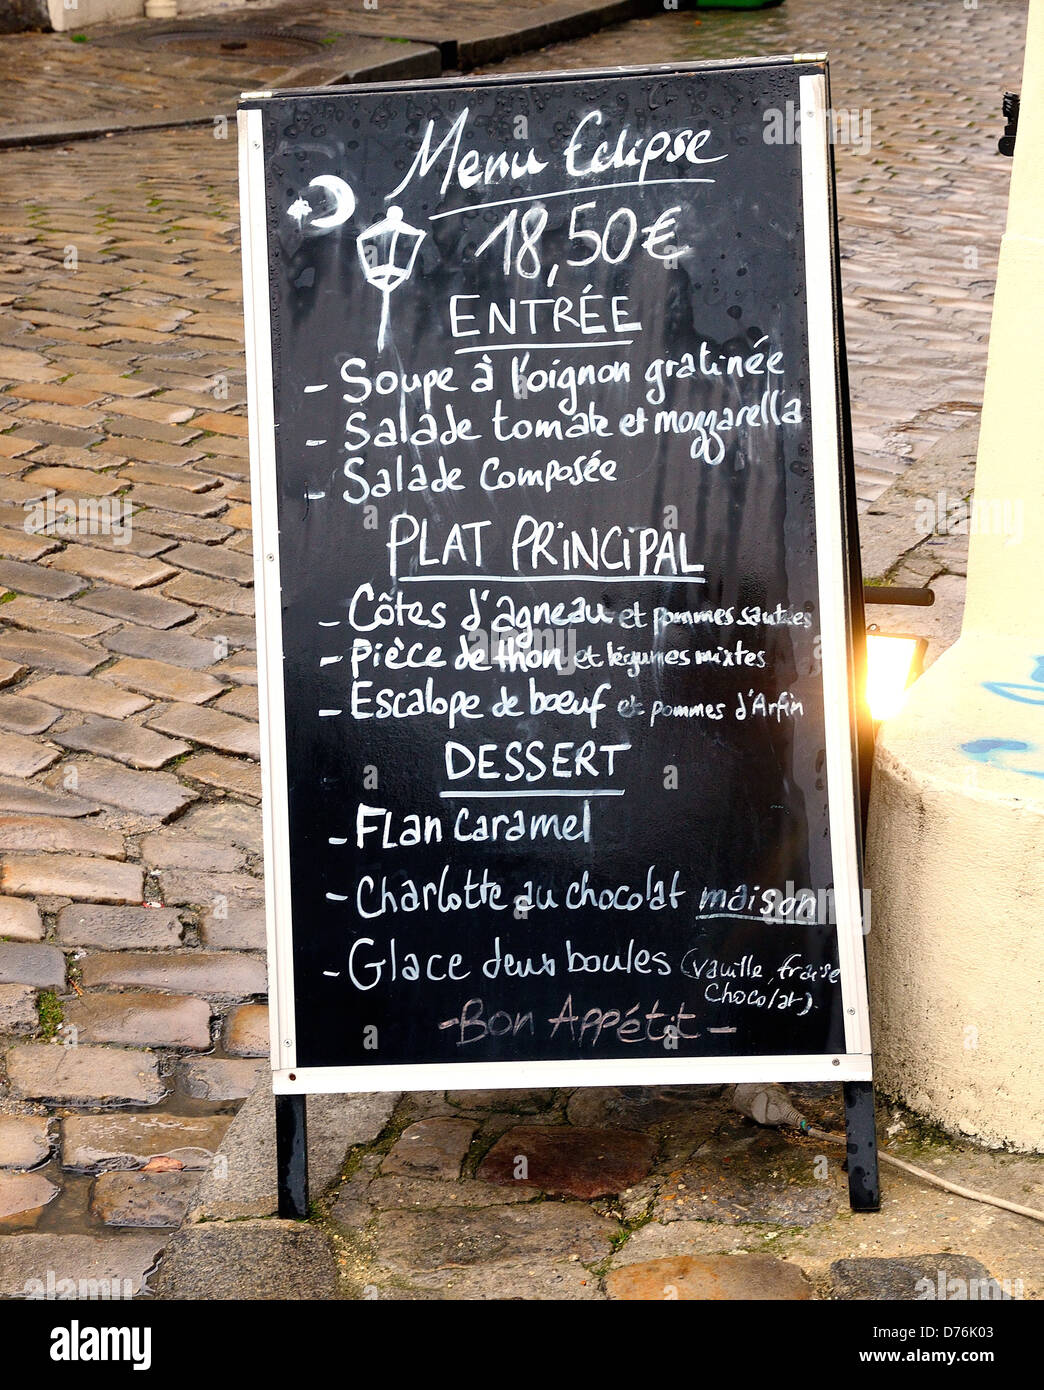 Menu Eclipse
18,50€
ENTRÉE
- Soupe à l'oignon gratinée
- Salade tomate et mozzarella
- Salade composée
PLAT PRINCIPAL
- Côtes d'agneau et pommes sautées
- Pièce de thon et légumes mixtes
- Escalope de bœuf et pommes d'Arfin
DESSERT
- Flan caramel
- Charlotte au chocolat maison
- Glace deux boules (vanille, fraise
chocolat).
- Bon Appétit -
alamy
Image ID: D76K03
www.alamy.com